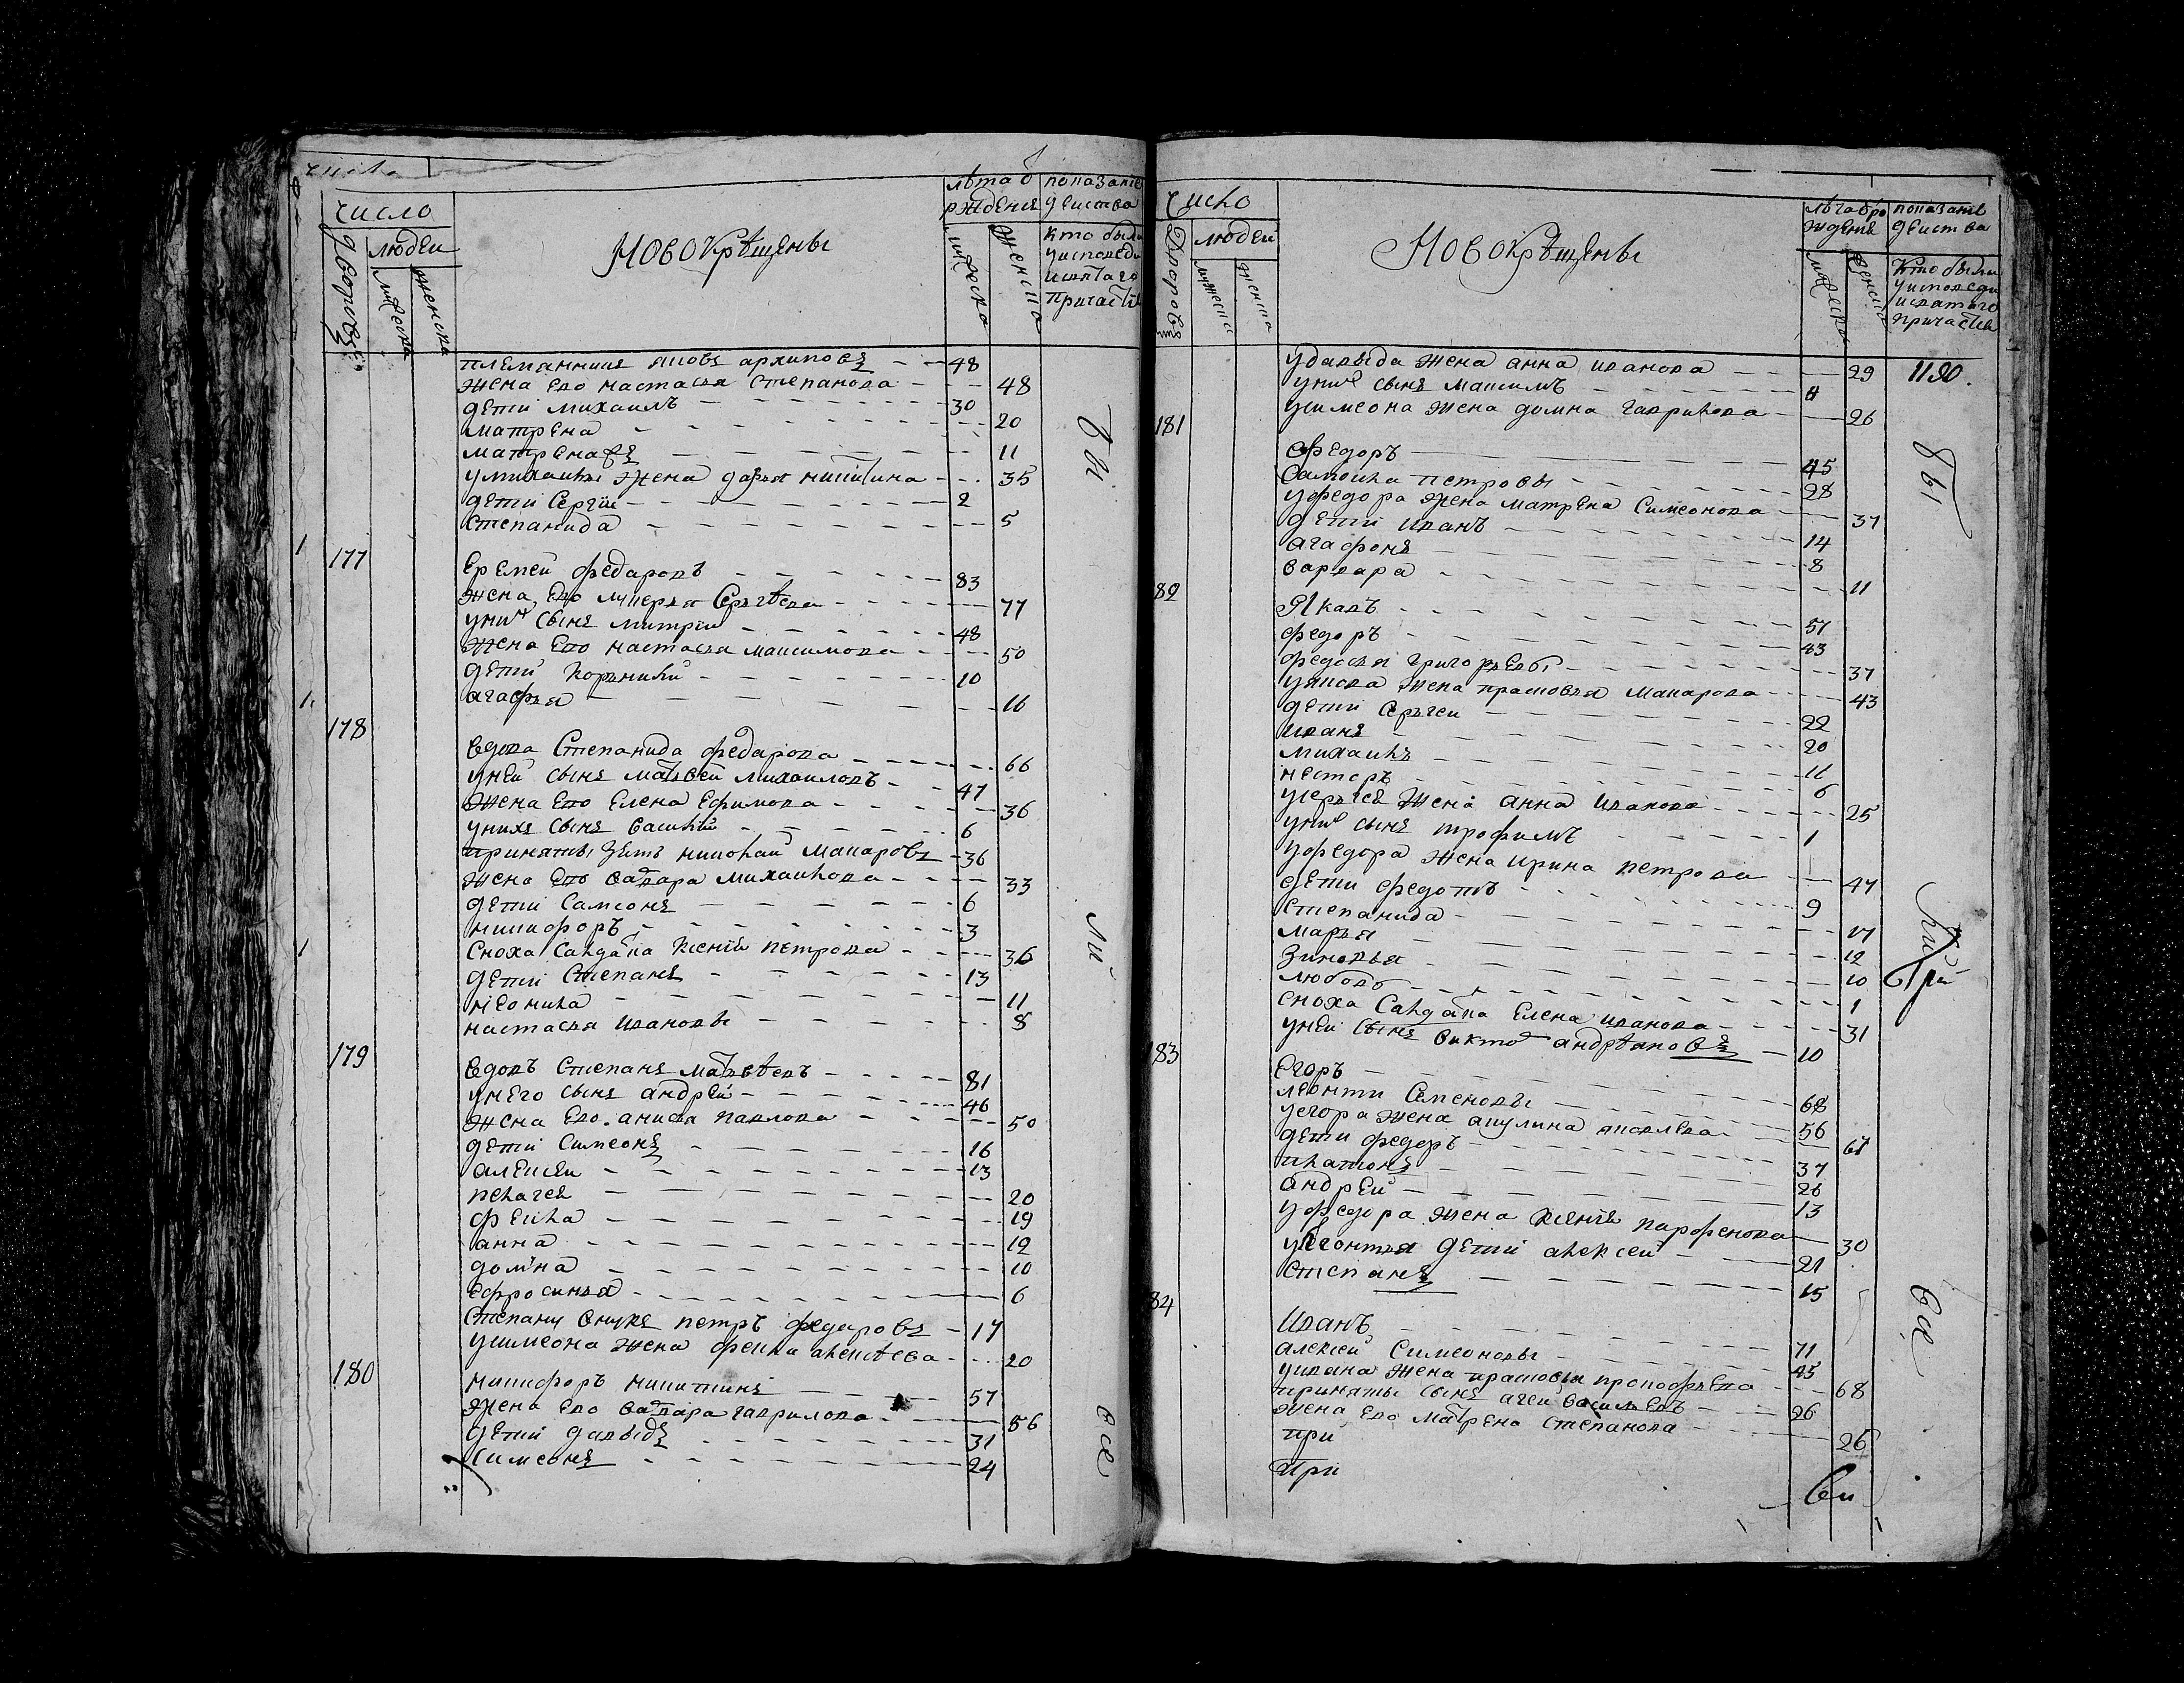 число
число
дворовъ
людеи
мужеска
женска
новокрѣщены
лѣта о
рждения
мужеска
женска
показание
деиства
кто были
уисповеди
исвятаго
причастия
племянникъ яковъ архиповъ 48
жена его настасья степанова 48
дети михаилъ 30
матрена 20
матрена 11
умихаила жена дарья никитина 35
дети Сергiи 2
степанида 5
177
еремеи федаровъ 83
жена его лукерья Сергѣева 77
уних сынъ митрiи 48
жена его настасья максимова 50
дети корнилий 10
агафья 16
178
вдова Степанида федарова 66
уней сынъ матвеи михаиловъ 47
жена его елена ефимова 36
унихъ сынъ василiй 6
принятыи зять николаи макаровъ 36
жена его варвара михаилова 33
дети самсонъ 6
никифоръ 3
сноха салдатка ксенiя петрова 36
дети степанъ 13
неонила 11
настасья ивановы 8
179
вдовъ степанъ матвѣевъ 81
унего сынъ андреи 46
жена его анисья павлова 50
дети симеонъ 16
алексеи 13
пелагея 20
фекла 19
анна 12
домна 10
ефросинья 6
степану внукъ петръ федаровъ 17
усимеона жена фекла алексѣева 20
180
никифоръ никитинъ 57
жена его варвара гаврилова 56
дети давыдъ 31
симеонъ 24
бы
ли
все
число
дворовъ
людей
мужеска
женска
новокрѣщены
лѣта о ро
ждения
мужеска
женска
показание
деиства
кто были
уисповеди
исвятаго
причастия
удавыда жена анна иванова 29
уних сынъ максимъ 4
усимеона жена домна гаврилова 26
181
федоръ 45
самоила петровы 28
уфедора жена матрена симеонова 37
дети иванъ 14
агафонъ 8
варвара 11
82
яковъ 57
федоръ 43
федосья григорьевы 37
уякова жена прасковья макарова 43
дети сергеи 22
иванъ 20
михаилъ 16
нестеръ 6
усергея жена анна иванова 25
уних сынъ трофимъ 1
уфедора жена ирина петрова 47
дети федотъ 9
степанида 17
марья 12
зиновья 10
любовь 1
сноха салдатка елена иванова 31
уней сынъ виктор андрѣяновъ 10
83
егоръ 68
леонти семеновы 56
уегора жена акулина яковлева 61
дети федоръ 37
платонъ 26
андреи 13
уфедора жена ксения парфенова 30
улеонтья дети алексеи 21
степанъ 15
84
иванъ 71
алексеи симеоновы 45
уивана жена прасковья прокофьева 68
принятыи сынъ агеи васильевъ 26
жена его матрена степанова 26
при
при
бы
ли
все